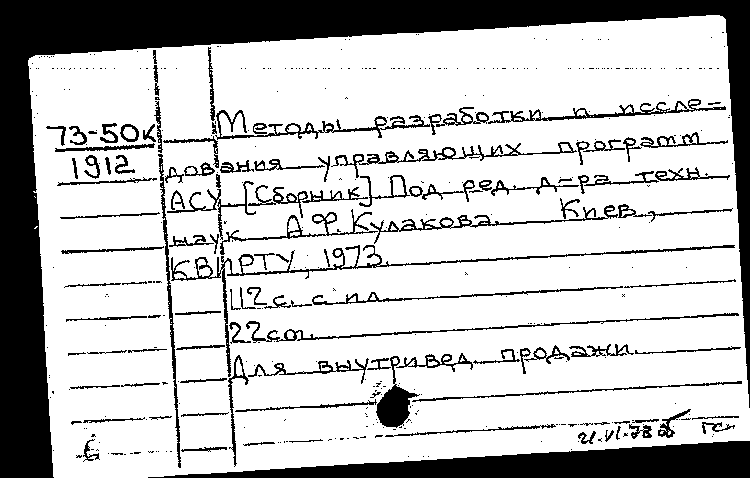 73-50к
1912
Методы разработки и иссле-
дования управляющих программ
АСУ. [Сборник]. Под ред. д-ра техн.
наук А.Ф. Кулакова. Киев,
КВИРТУ, 1973.
112 с. с ил.
22 cm.
Для внутривед. продажи.
21.VI.73